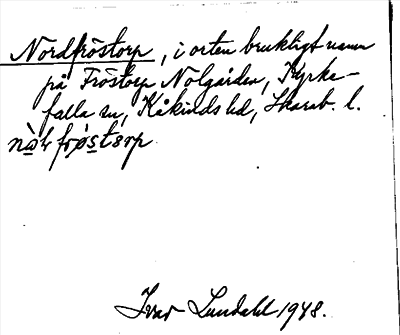 Nordfröstorp, i orten brukligt namn
på Fröstorp Nolgården, Kyrke-
falla sn, Kåkinds hd, Skarab. l.
Ivar Lundahl 1948.